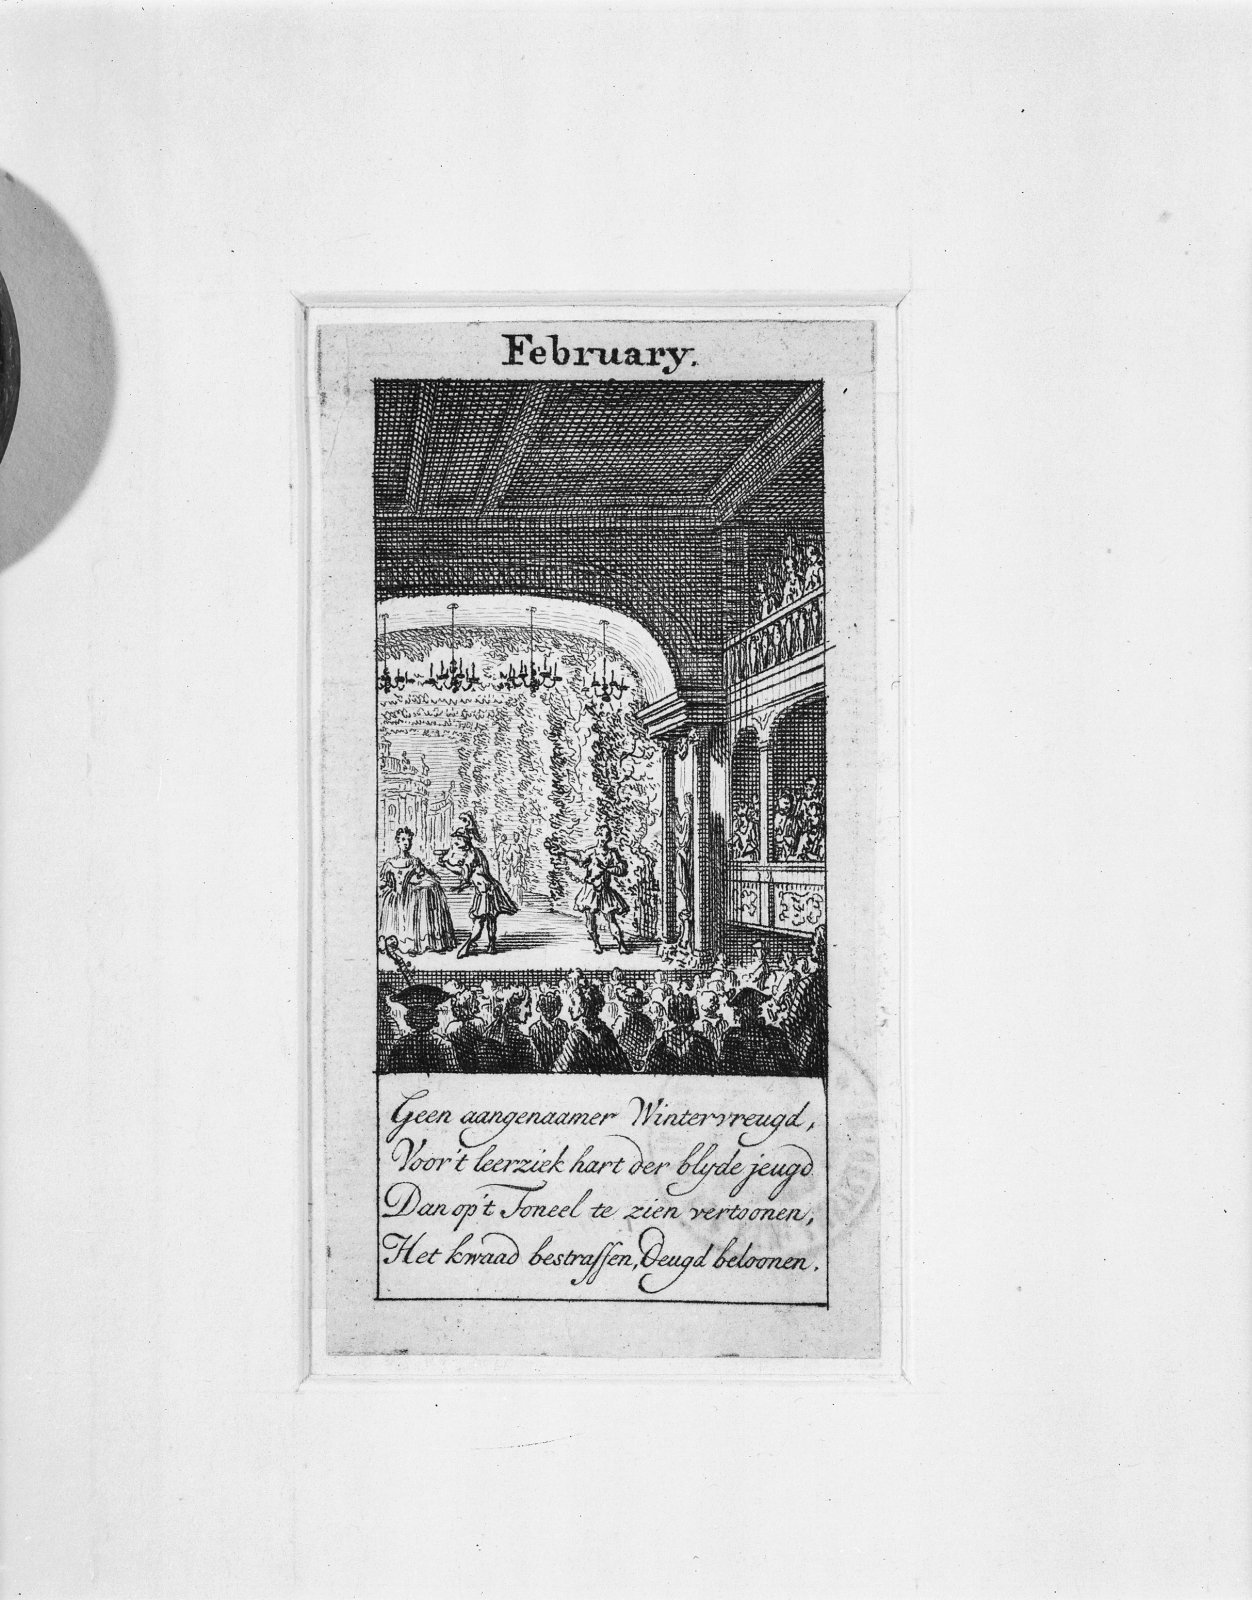 February.
Geen aangenaamer Wintervreugd,
Voor't leerziek hart der blyde jeugd
Dan op't Toneel te zien vertoonen,
Het kwaad bestraffen, Deugd beloonen.